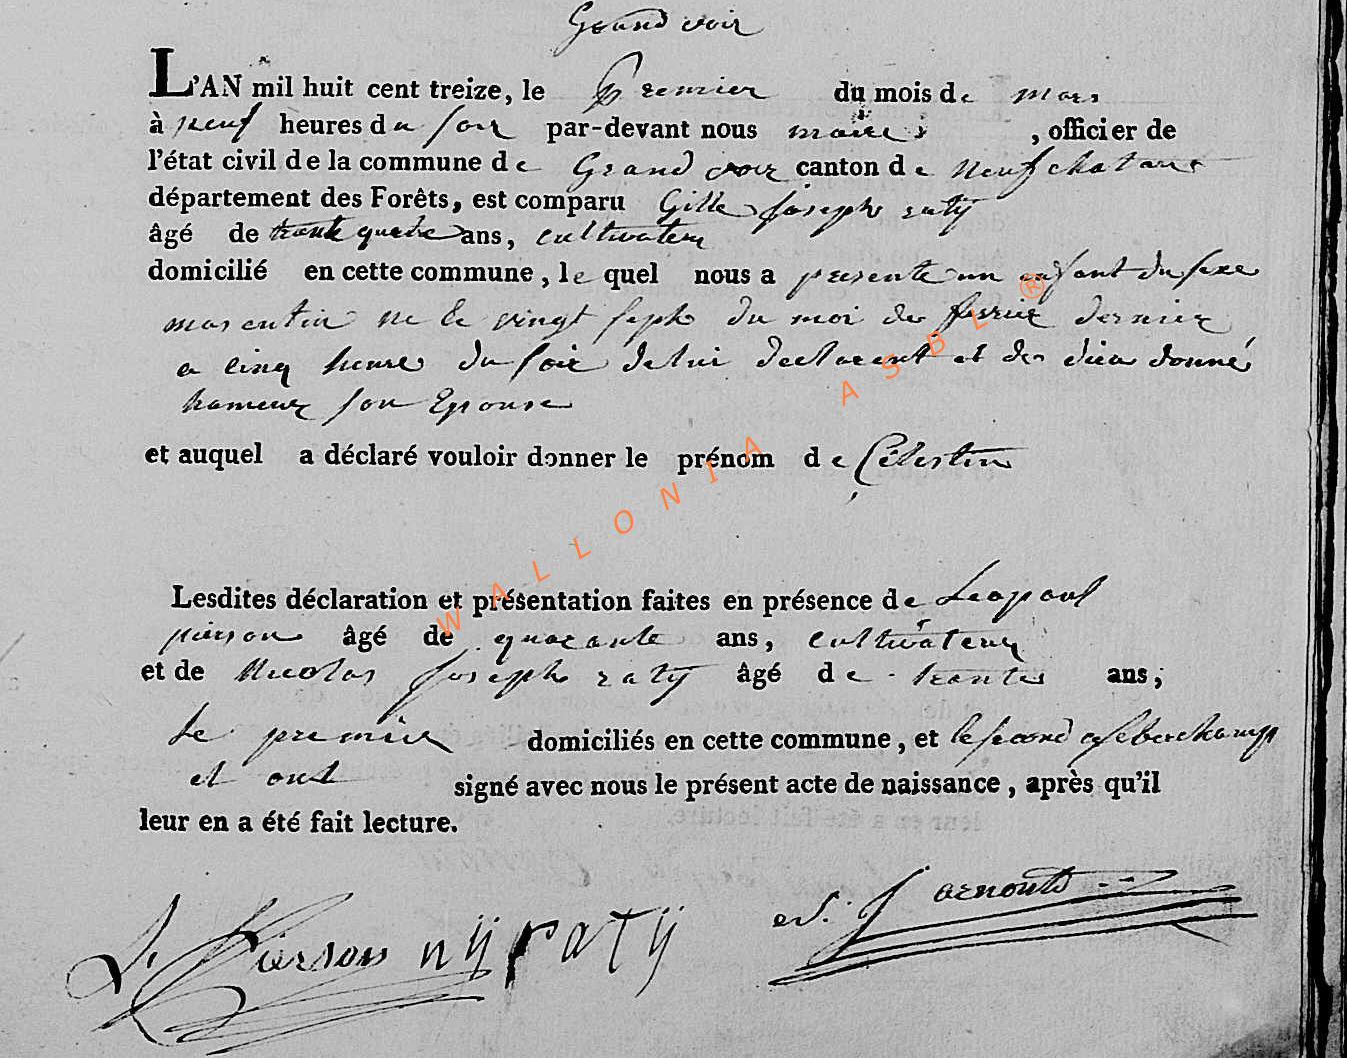 Grand voir
L'AN mil huit cent treize, le premier du mois de mars
à neuf heures du soir par-devant nous maire , officier de
l'état civil de la commune de Grand voir canton de Neufchatau
département des Forêts, est comparu Gille joseph raty
âgé de trante quatre ans, cultivateur
domicilié en cette commune, le quel nous a presente un enfant du sexe
masculin ne le vingt sept du moi de fevrier dernier
a cinq heure du soir de lui declarent et de dieu donné
hameur son Epouse
et auquel a déclaré vouloir donner le prénom de Célestin
Lesdites déclaration et présentation faites en présence de Leopoul
pierson âgé de quarante ans, cultivateur
et de Nicolas joseph raty âgé de trante ans;
le premier domiciliés en cette commune, et le second a seberchamp
et ont signé avec nous le présent acte de naissance, après qu'il
leur en a été fait lecture.
L. Pierson nÿ ratÿ J arnould
WALLONIA ASBL ®